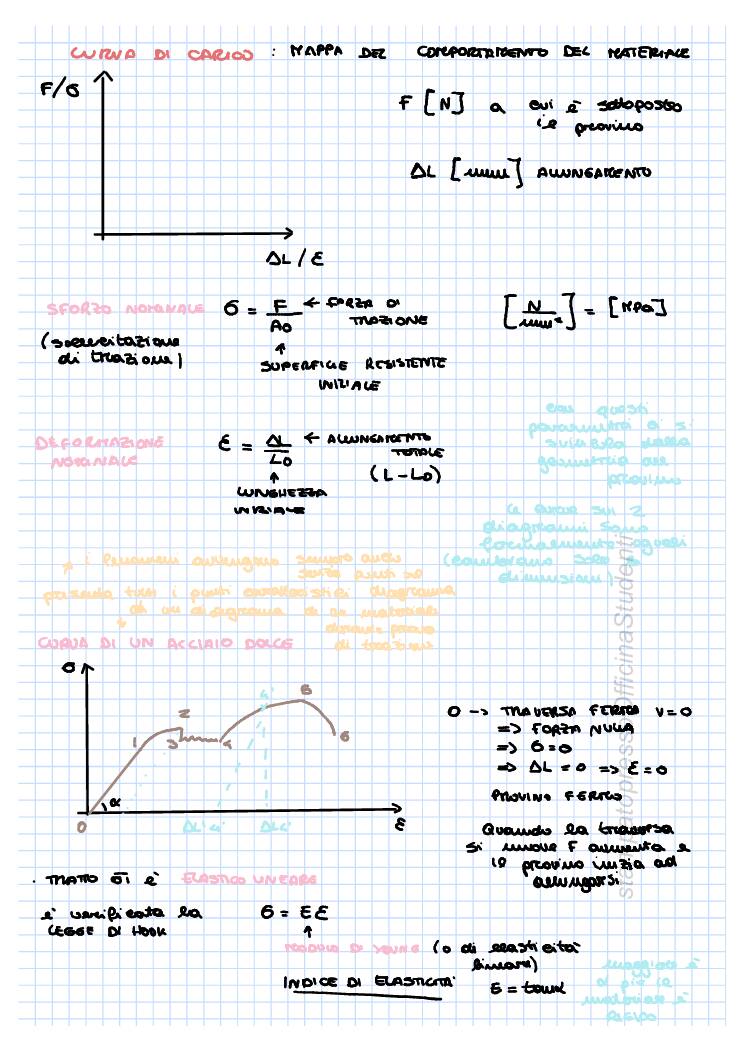 CURVA DI CARICO : MAPPA DEL COMPORTAMENTO DEL MATERIALE
F/σ
F [N] a cui è sottoposto
il provino
ΔL [mm] ALLUNGAMENTO
ΔL / ε
SFORZO NOMINALE
(sollecitazione
di trazione)
σ = F/A0 ← FORZA DI
TRAZIONE
↑
SUPERFICIE RESISTENTE
INIZIALE
[N/mm²] = [MPa]
DEFORMAZIONE
NOMINALE
ε = ΔL/L0 ← ALLUNGAMENTO
TOTALE
(L-L0)
↑
LUNGHEZZA
INIZIALE
con questi
parametri ci si
svincola dalla
geometria del
provino
le curve sui 2
diagrammi sono
formalmente uguali
(cambiano solo le
dimensioni)
i fenomeni avvengono sempre anche
senza punti se
presenta tutti i punti caratteristici diagramma
di un diagramma di un materiale
durante prova
di trazione
CURVA DI UN ACCIAIO DOLCE
σ
1
2
3
4
4'
5
6
α
0
ΔL'4'
ΔL4'
ε
0 -> TRAVERSA FERMA V=0
=> FORZA NULLA
=> σ=0
=> ΔL = 0 => ε=0
PROVINO FERMO
Quando la traversa
si muove F aumenta e
il provino inizia ad
allungarsi
. TRATTO 01 è ELASTICO LINEARE
è verificata la
LEGGE DI HOOK
σ = Eε
↑
MODULO DI YOUNG (o di elasticità
lineare)
INDICE DI ELASTICITA'
E = tanα
maggiore è
α più il
materiale è
rigido
stampatopressoOfficinaStudenti